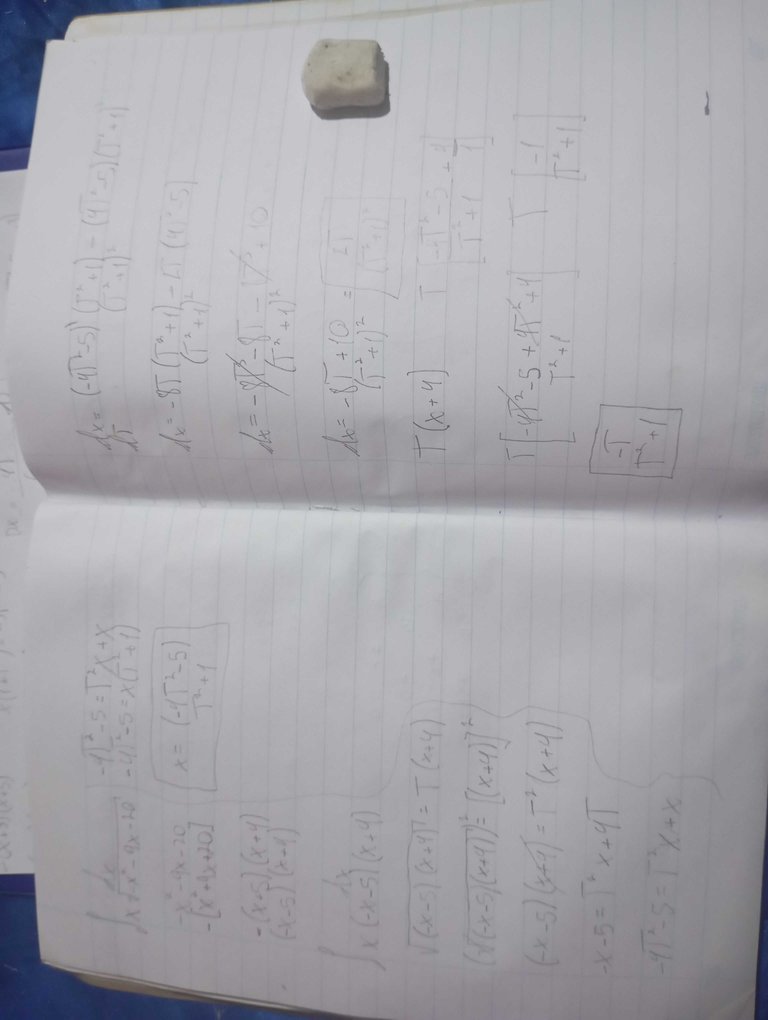 ∫ dx / x√-x²-9x-20
-x²-9x-20
-[x²+9x+20]
-(x+5)(x+4)
(-x-5)(x+4)
∫ dx / x√(-x-5)(x+4)
√(-x-5)(x+4) = T(x+4)
(√(-x-5)(x+4))² = [T(x+4)]²
(-x-5)(x+4) = T²(x+4)
-x-5 = T²x+4T
-4T²-5 = T²x+x
-4T²-5 = T²x+x
-4T²-5 = x(T²+1)
x = (-4T²-5) / T²+1
dx/dT = (-4T²-5)'(T²+1) - (4T²-5)(T²+1)' / (T²+1)²
dx = -8T(T²+1) - 2T(4T²-5) / (T²+1)²
dx = -8T+10 / (T²+1)² = 2T / (T²+1)²
T(x+4)
T[-4T²-5 / T²+1 + 4/1]
T[-4T²-5+4T²+4 / T²+1]
T[-1 / T²+1]
-T / T²+1